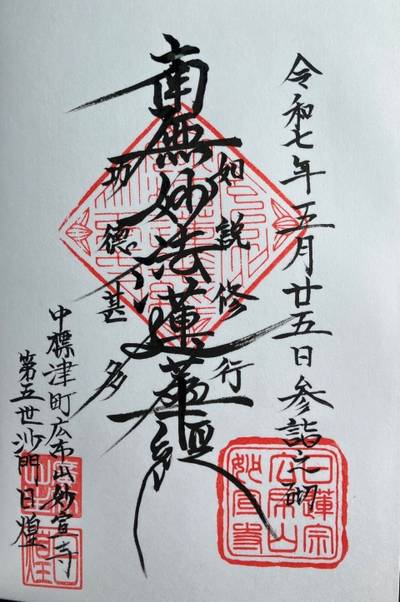 令和七年五月廿五日参詣之砌
如説修行
南無妙法蓮華経
功徳甚多
中標津町広布山妙宣寺
第五世沙門日煌
日蓮宗
広布山
妙宣寺